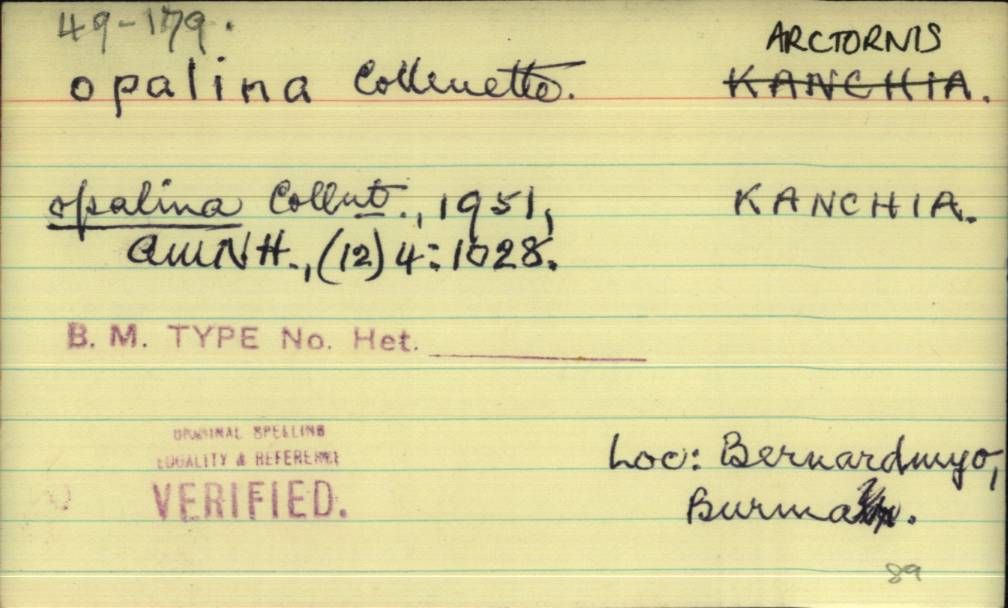 49-179.
ARCTORNIS
opalina Collenette. KANCHIA.
opalina Collent., 1951, KANCHIA.
AMNH., (12) 4: 1028.
B. M. TYPE No. Het.
ORIGINAL SPELLING
LOCALITY & REFERENCE
VERIFIED.
Loc: Bernardmyo,
Burma.
89